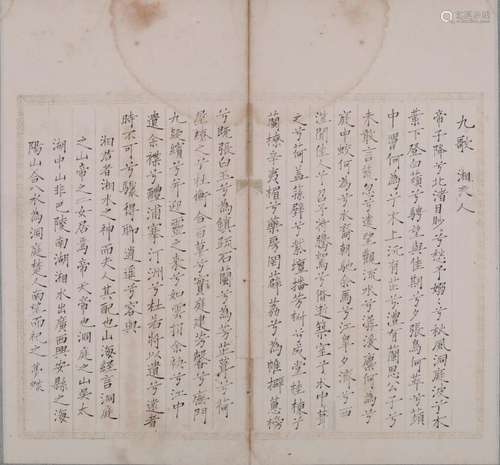 九歌 湘夫人
帝子降兮北渚目眇兮愁予嫋兮秋風洞庭波兮木
葉下登白薠兮騁望與佳期兮夕張鳥何萃兮蘋
中罾何為兮木上沅有芷兮澧有蘭思公子兮
未敢言荒忽兮遠望觀流水兮潺湲麋何為兮
庭中蛟何為兮水裔朝馳余馬兮江皋夕濟兮西
澨聞佳人兮召予將騰駕兮偕逝築室兮水中葺
之兮荷蓋蓀壁兮紫壇播芳椒兮成堂桂棟兮
蘭橑辛夷楣兮藥房罔薜荔兮為帷擗蕙櫋
兮既張白玉兮為鎮疏石蘭兮為芳芷葺兮荷
屋繚之兮杜衡合百草兮實庭建芳馨兮廡門
九嶷繽兮並迎靈之來兮如雲捐余袂兮江中
遺余褋兮醴浦搴汀洲兮杜若將以遺兮遠者
時不可兮驟得聊逍遥兮容與
湘君者湘水之神而夫人其配也山海經言洞庭
之山帝之二女居焉帝天帝也洞庭之山吳太
湖中山非巴陵南湖湘水出廣西興安縣之海
陽山合八水為洞庭楚人南望而祀之